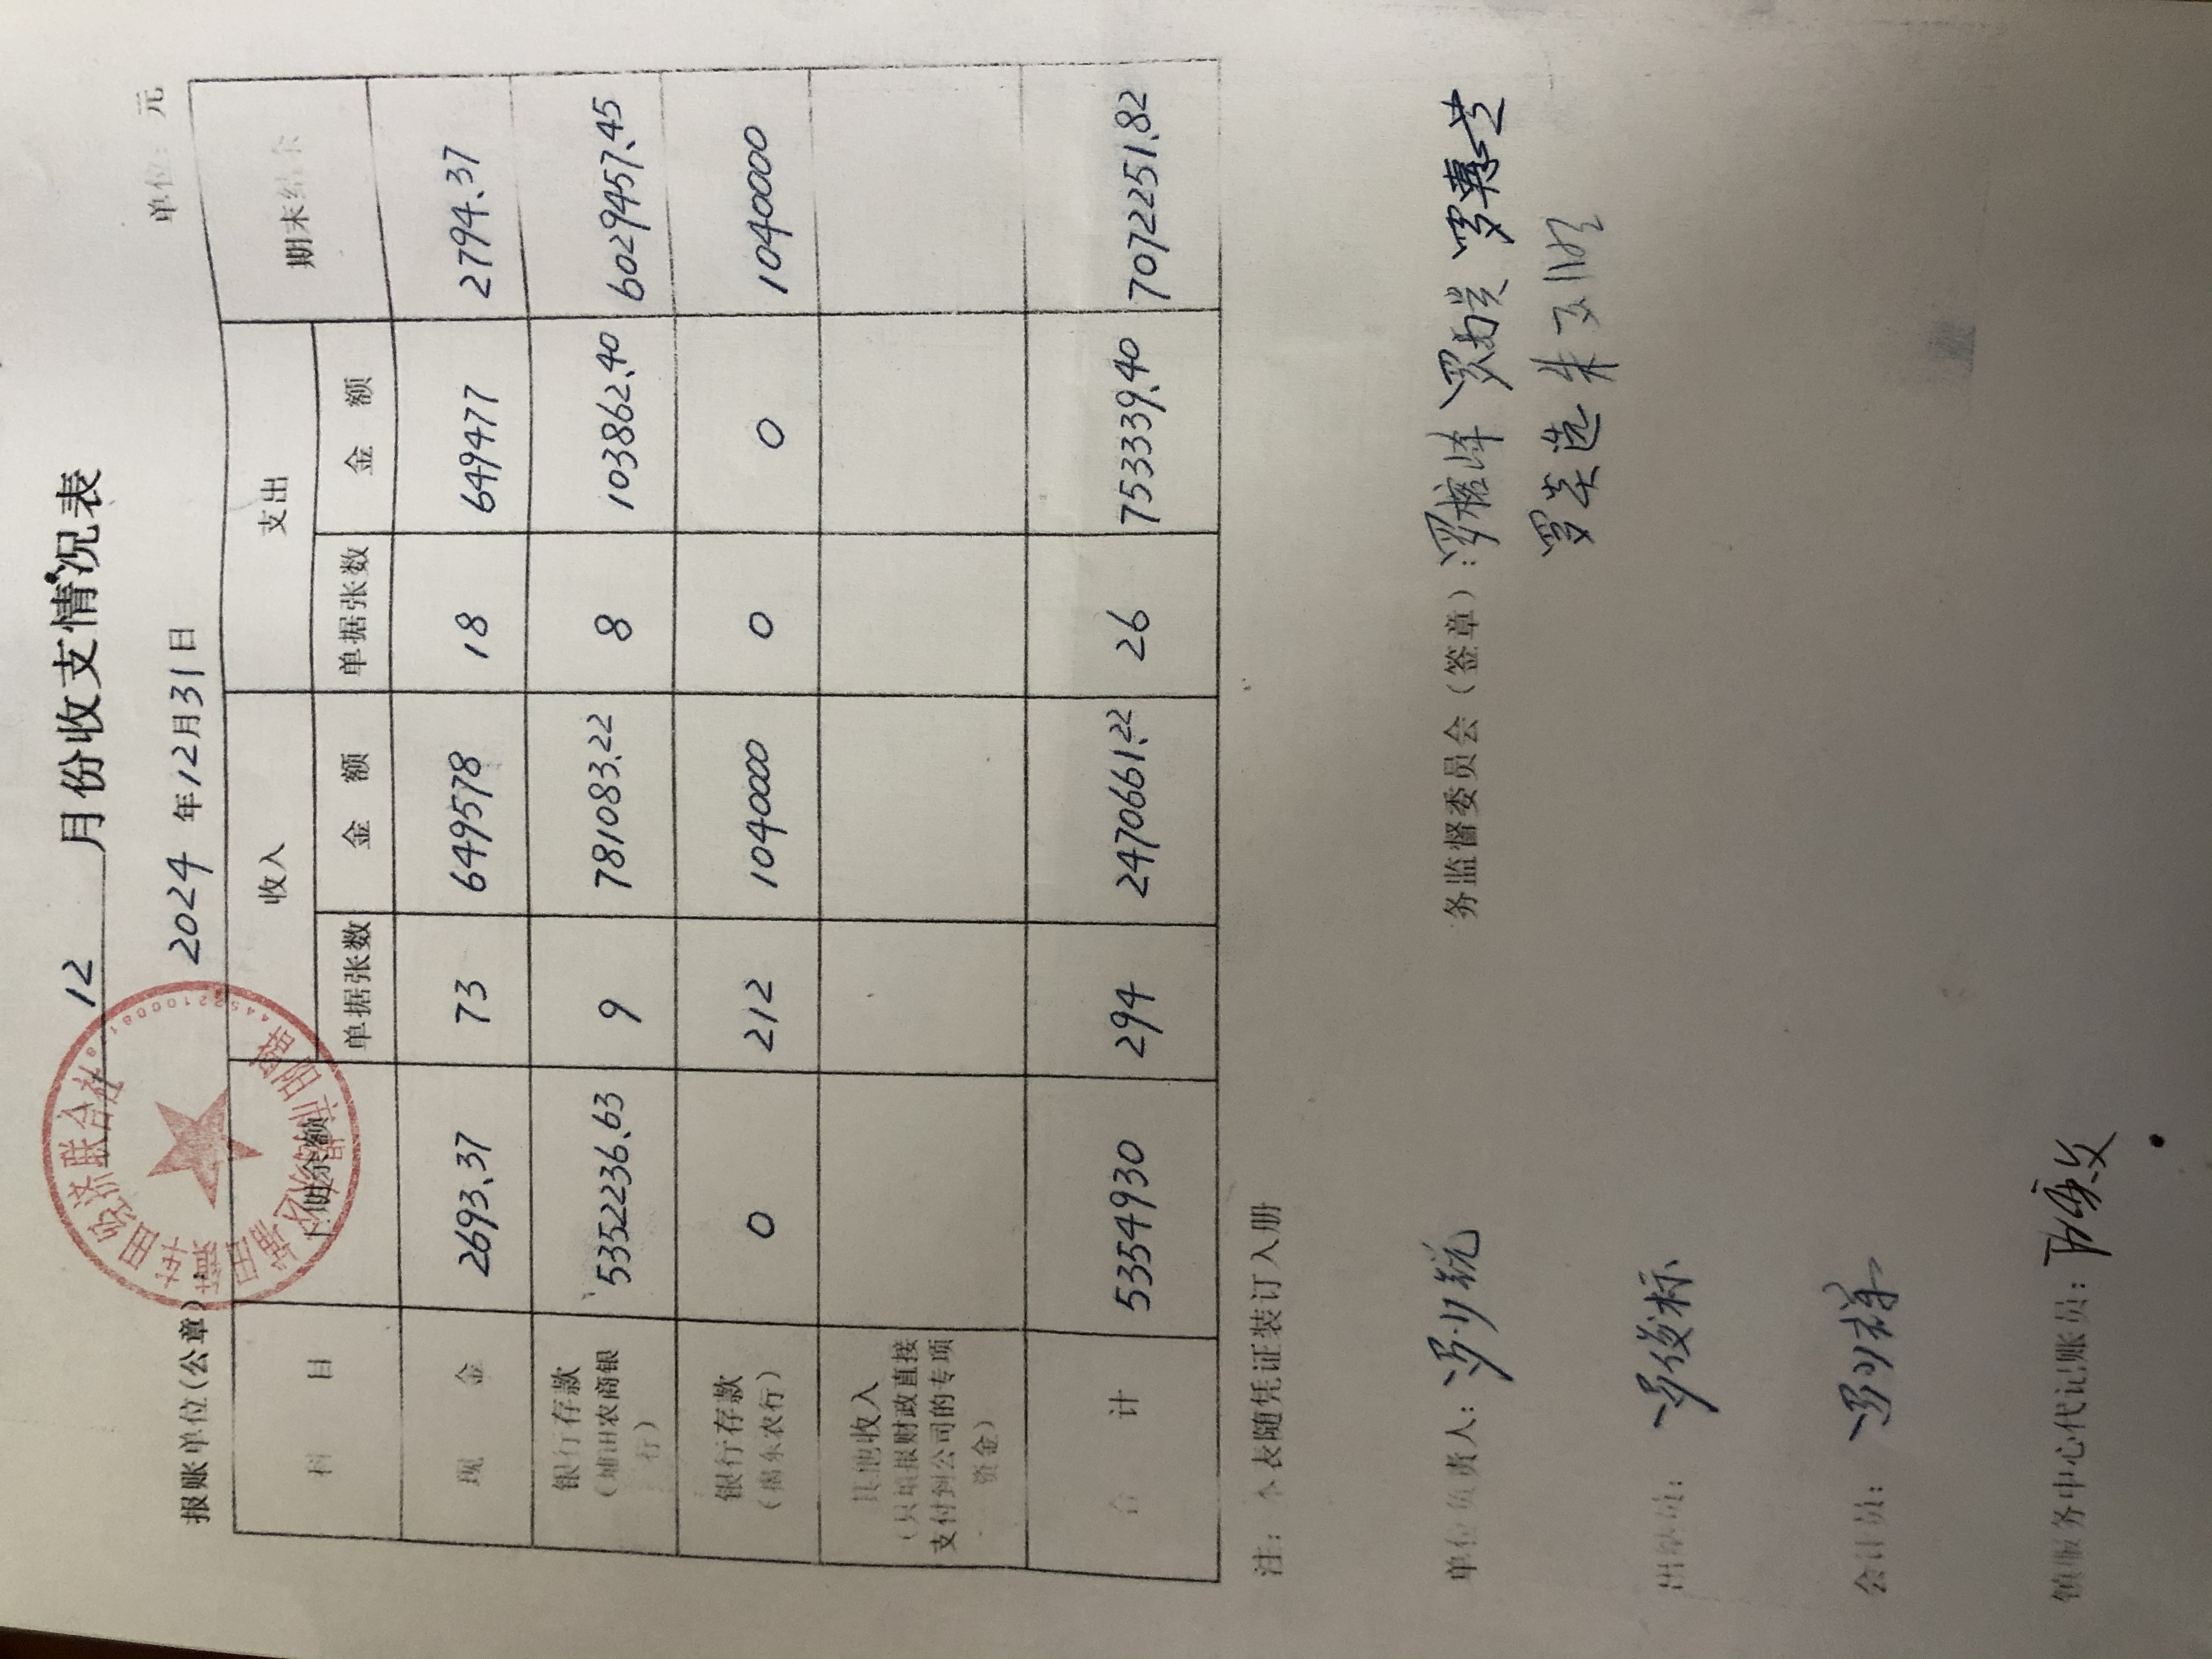 12 月份收支情况表
报账单位(公章)
2024 年12月31日
单位: 元
科 目
上期余额
收入
支出
期末结余
单据张数
金 额
单据张数
金 额
现 金 2693.37 73 649578 18 649477 2794.37
银行存款
(埔田农商银
行)
5352236.63 9 781083.22 8 103862.40 6029457.45
银行存款
(揭东农行)
0 212 1040000 0 0 1040000
其他收入
(只填报财政直接
支付到公司的专项
资金)
合 计 5354930 294 2470661.22 26 753339.40 7072251.82
注: 本表随凭证装订入册
单位负责人:
务监督委员会(签章):
出纳员: 俊标
会计员:
镇服务中心代记账员: